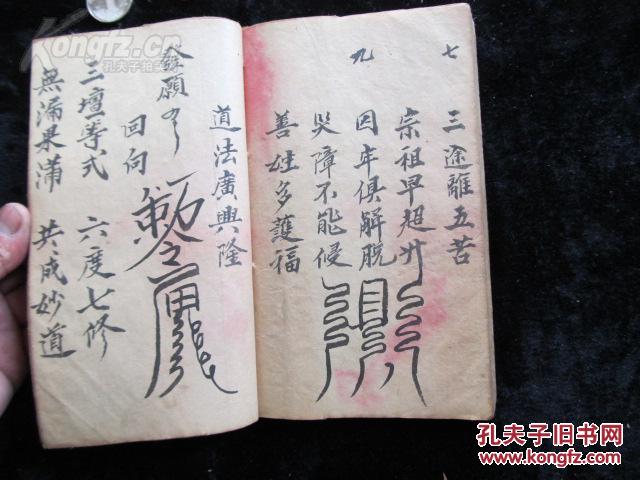 七
三途離五苦
宗祖早超升
九
囚牢俱解脱
災障不能侵
善姓多護福
道法廣興隆
回向
三壇一等式 六度七修
無漏果滿 共成妙道
Kongfz.cn
孔夫子旧书网
www.kongfz.com